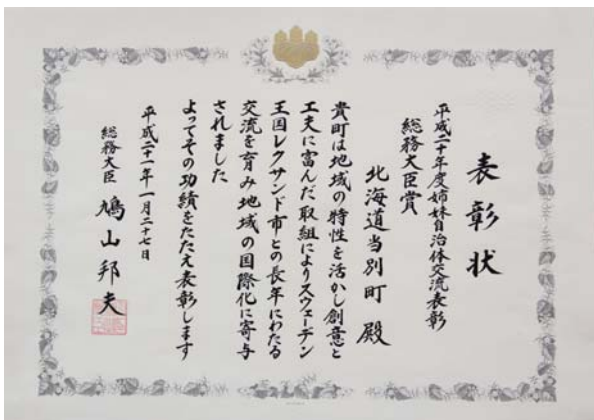 表彰状
平成二十年度姉妹自治体交流表彰
総務大臣賞
北海道当別町 殿
貴町は地域の特性を活かし創意と
工夫に富んだ取組によりスウェーデン
王国レクサンド市との長年にわたる
交流を育み地域の国際化に寄与
されました
よってその功績をたたえ表彰します
平成二十一年一月二十七日
総務大臣 鳩山邦夫